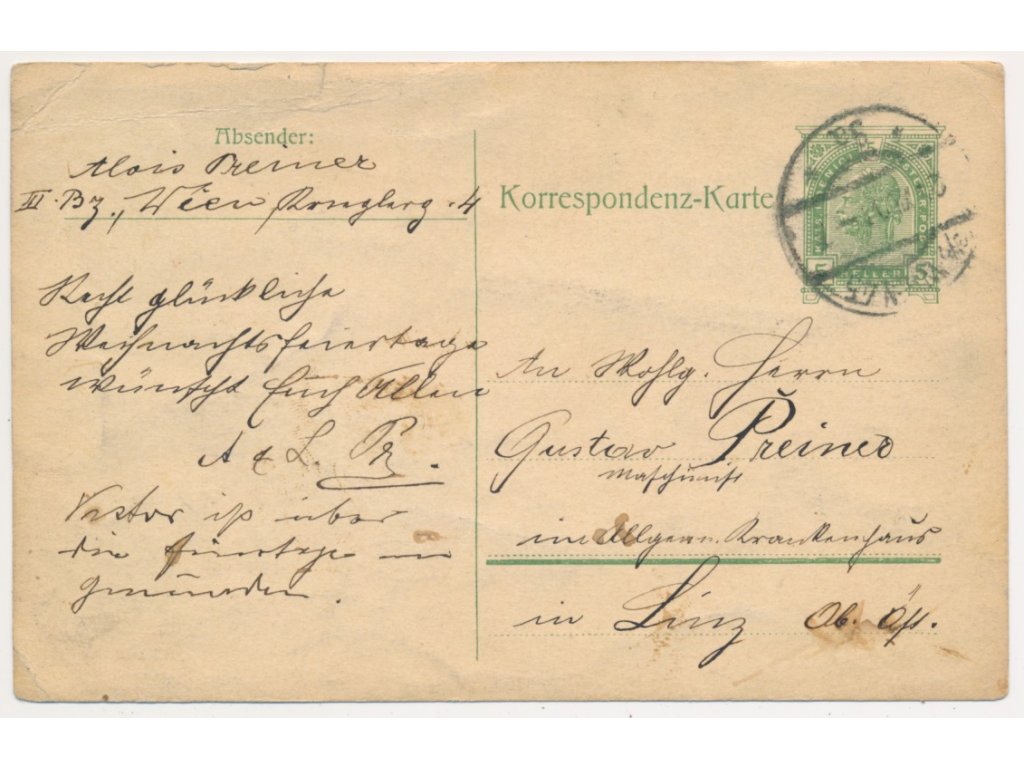 Absender:
Alois Preiner
III. Bz., Wien 4
Korrespondenz-Karte
5 HELLER 5
Recht glückliche
Weihnachtsfeiertage
wünscht Euch Allen
A & L. Pr.
Victor ist über
die Feiertage in
Gmunden.
An Wohlg. Herrn
Gustav Preiner
Maschinist
im Allgem. Krankenhaus
in Linz Ob. Öst.